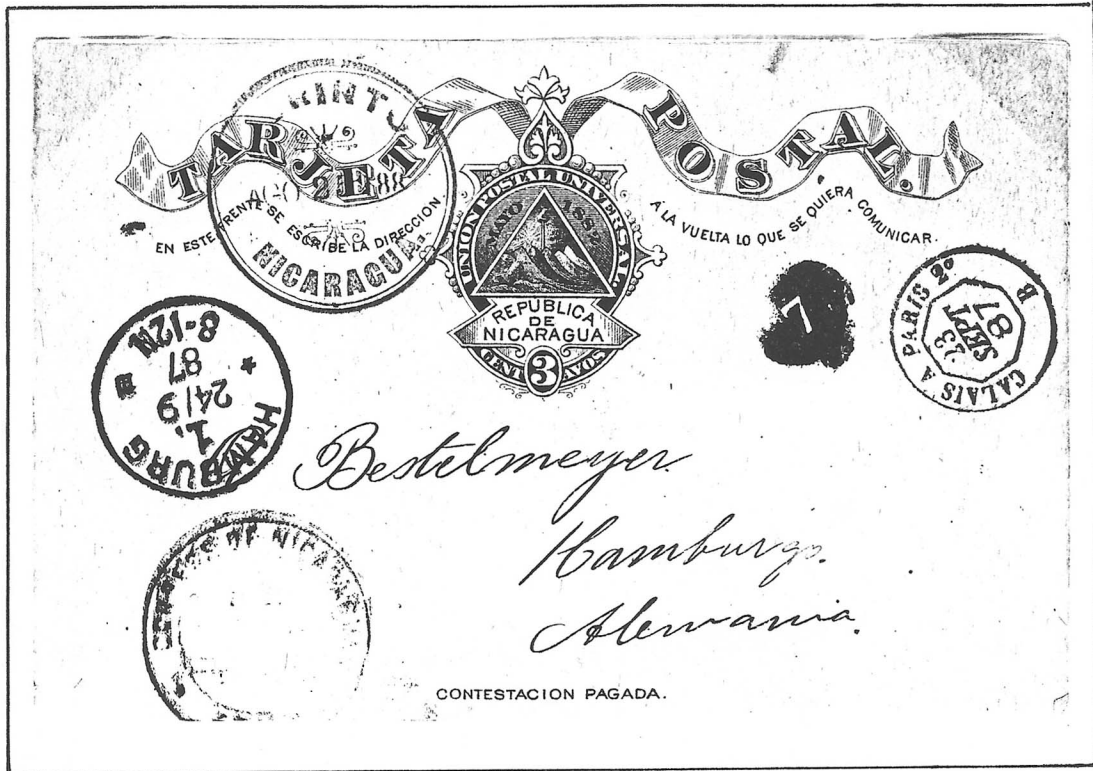 TARJETA POSTAL.
EN ESTE FRENTE SE ESCRIBE LA DIRECCION.
A LA VUELTA LO QUE SE QUIERA COMUNICAR.
UNION POSTAL UNIVERSAL
MAYO 1882
REPUBLICA
DE
NICARAGUA
CENTAVOS
3
NICARAGUA
7
CALAIS A PARIS 2°
23
SEPT
87
B
HAMBURG
1.
24/9
87
8-12M
Bestelmeyer
Hamburgo.
Alemania.
DE
CONTESTACION PAGADA.